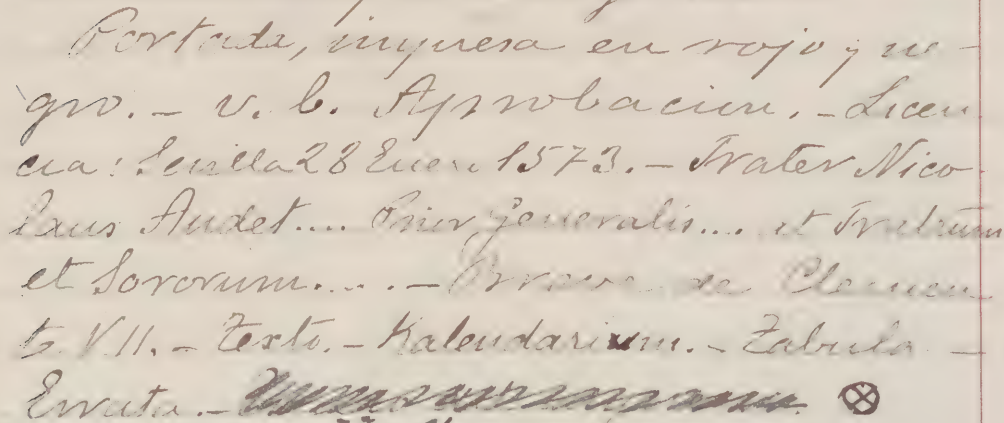 Portada, impresa en rojo y ne-
gro. - v. b. Aprobacion. - Licen
cia: Sevilla 28 Enero 1573. - Frater Nico-
laus Audet.... Prior generalis.... et Fratrum
et Sororum..... - Breve de Clemen
te VII. - Texto. - Kalendarium. - Tabula -
Errata. -